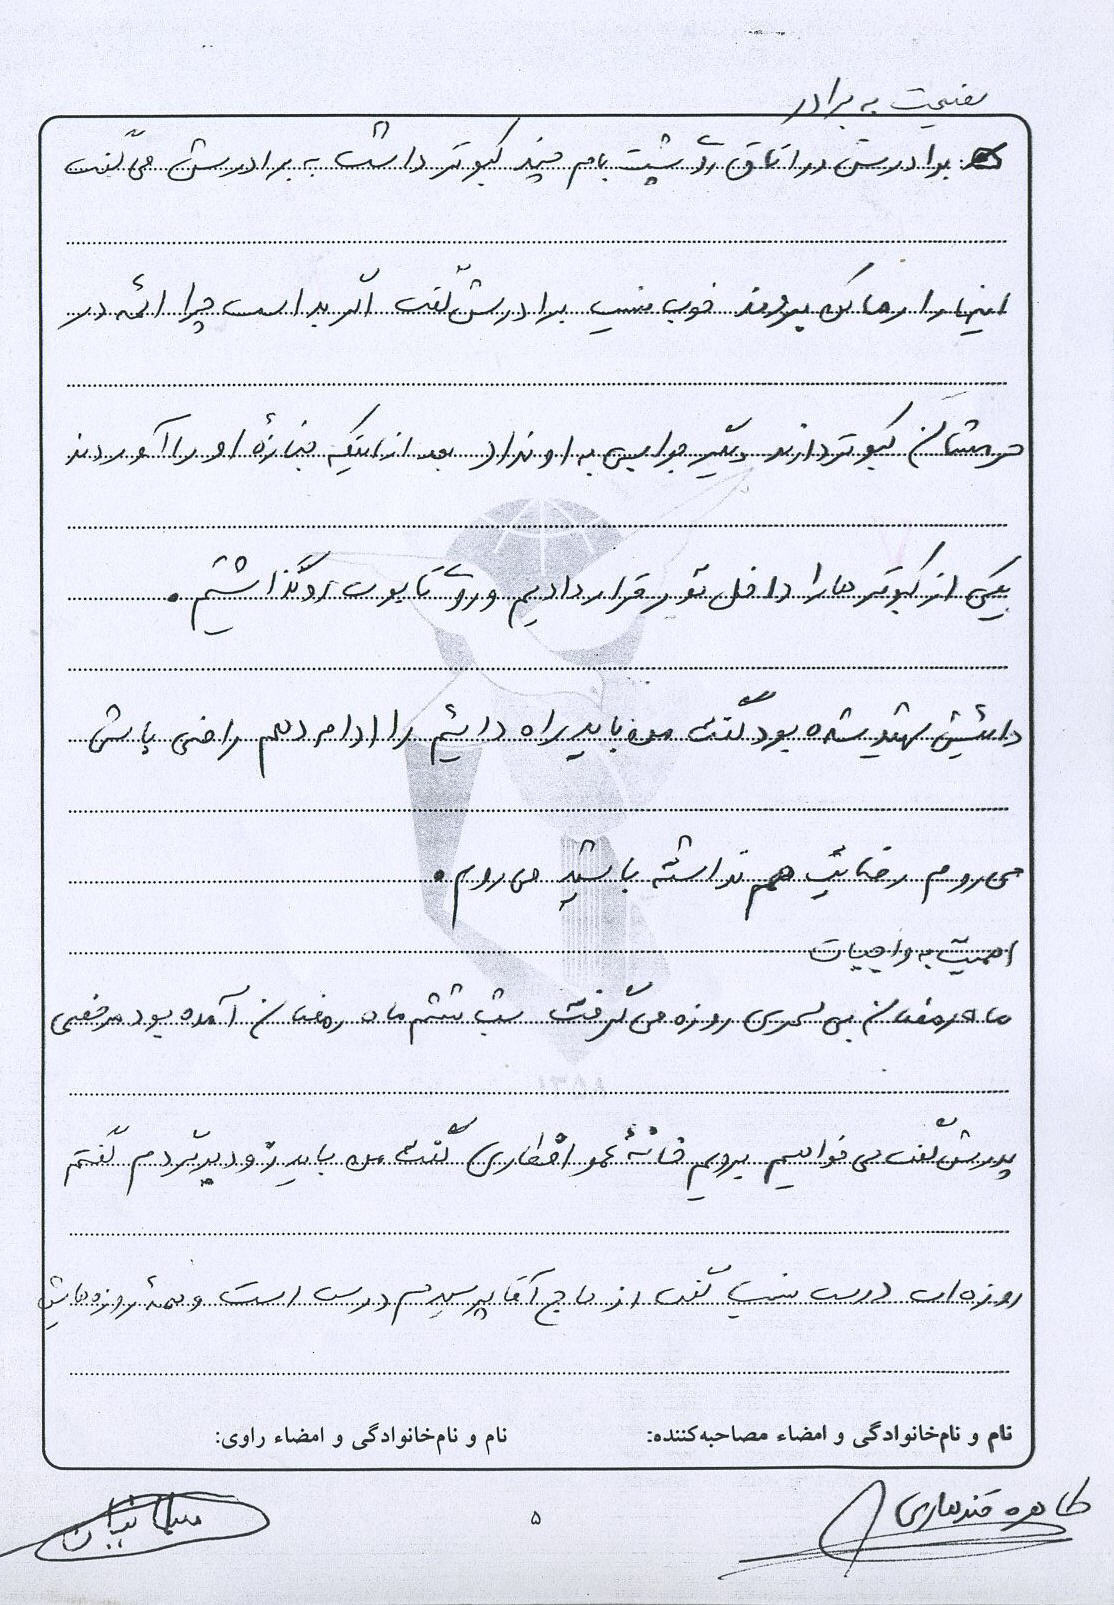 نصیحت به برادر
برادرش در اتاق رو پشت بام چند کبوتر داشت به برادرش می‌گفت
اینها را رها کن بروند خوب نیست برادرش گفت اگر بد است چرا ائمه در
حرمشان کبوتر دارند دیگر جوابی به او نداد بعد از اینکه جنازهٔ او را آوردند
یکی از کبوترها را داخل تور قرار دادیم و روی تابوت او گذاشتیم.
دائیش شهید شده بود گفت من باید راه دائیم را ادامه دهم راضی باش
می‌روم رضایت هم نداشته باشید می‌روم.
اهمیت به واجبات
ماه رمضان بی سحری روزه می‌گرفت شب ششم ماه رمضان آمده بود مرخصی
پدرش گفت می‌خواهیم برویم خانهٔ عمو افطاری گفت من باید زود برگردم گفتم
روزه‌ات درست نیست گفت از حاج آقا پرسیدم درست است و همهٔ روزه‌هایش
نام و نام‌خانوادگی و امضاء مصاحبه‌کننده:
نام و نام‌خانوادگی و امضاء راوی:
طاهره قندهاری
۵